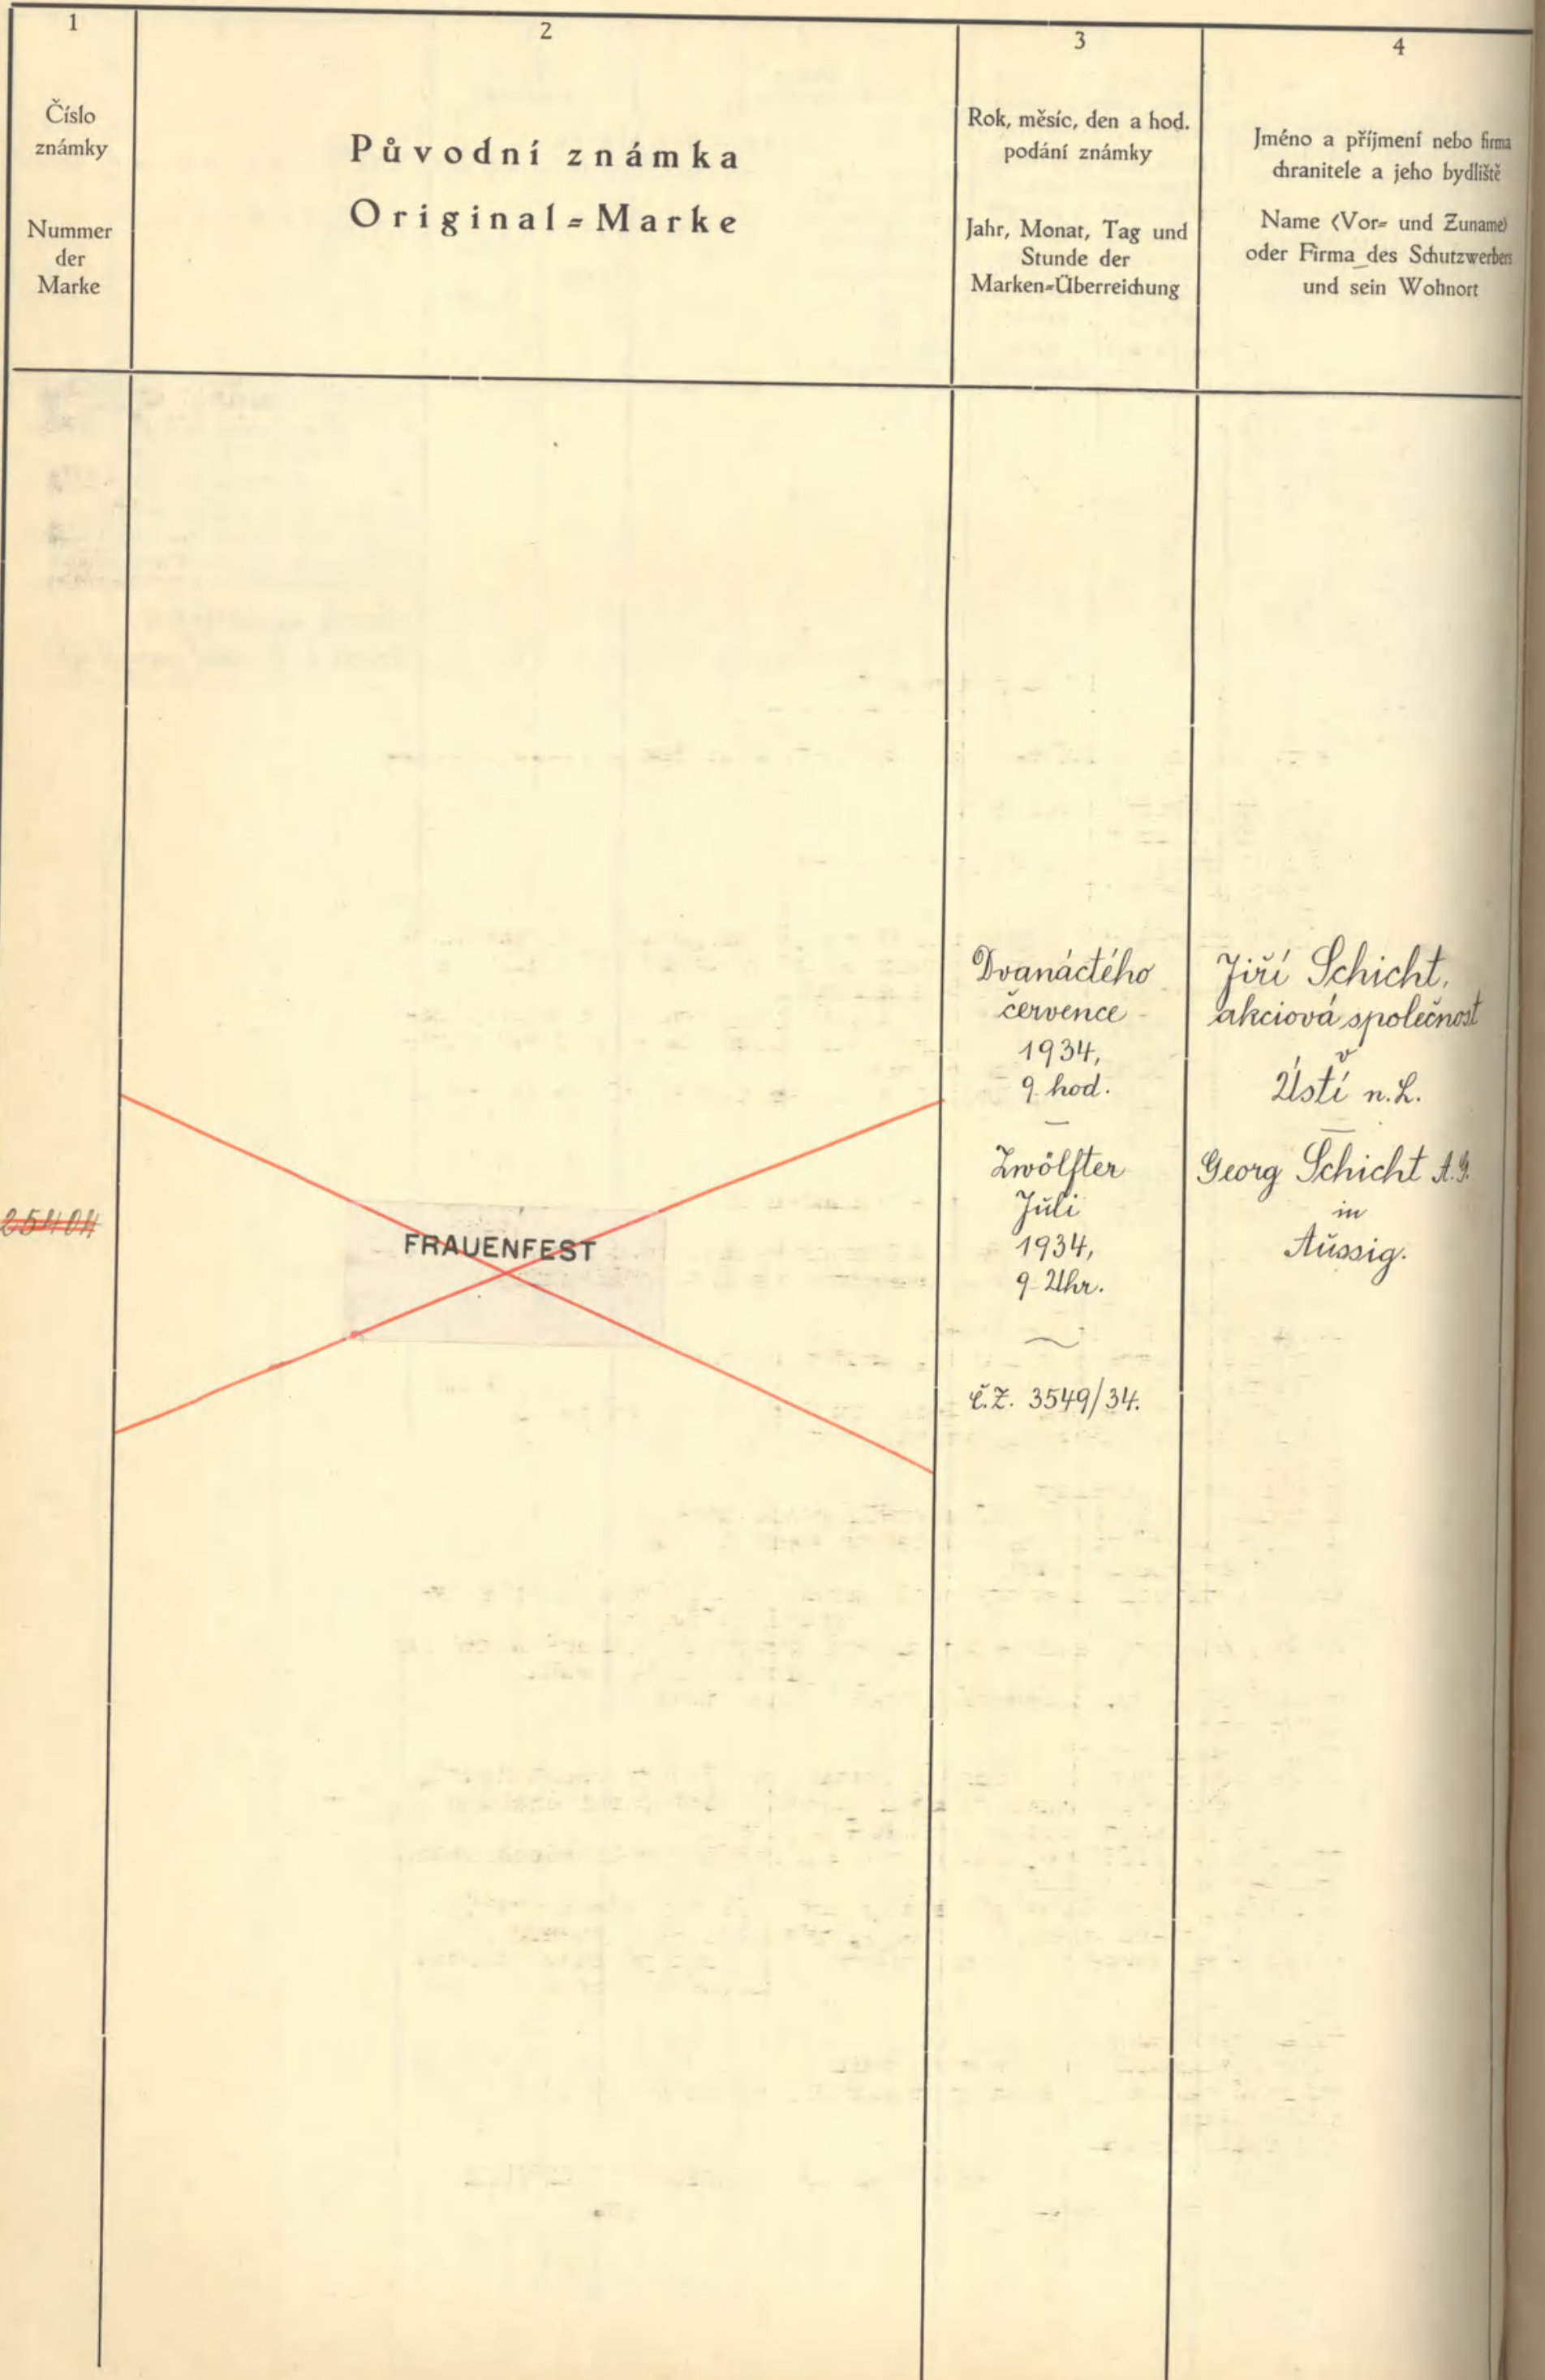 1
Číslo
známky
Nummer
der
Marke
2
Původní známka
Original=Marke
3
Rok, měsíc, den a hod.
podání známky
Jahr, Monat, Tag und
Stunde der
Marken=Überreichung
4
Jméno a příjmení nebo firma
chranitele a jeho bydliště
Name (Vor= und Zuname)
oder Firma des Schutzwerbers
und sein Wohnort
25404
FRAUENFEST
Dvanáctého
července
1934,
9 hod.
—
Zwölfter
Juli
1934,
9 Uhr.
č.ž. 3549/34.
Jiří Schicht,
akciová společnost
v
Ústí n.L.
—
Georg Schicht A.G.
in
Aussig.